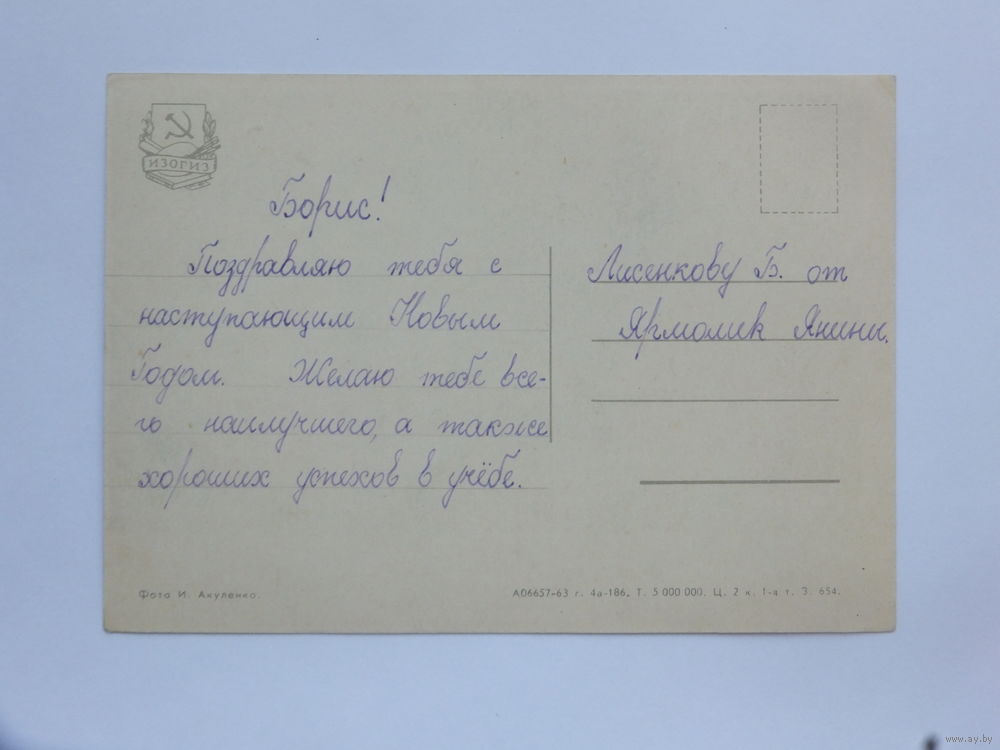 ИЗОГИЗ
Борис!
Поздравляю тебя с
наступающим Новым
Годом. Желаю тебе все-
го наилучшего, а также
хороших успехов в учёбе.
Лисенкову Б. от
Ярмолик Янины.
Фото И. Акуленко.
А06657-63 г. 4а-186. Т. 5 000 000. Ц. 2 к. 1-я т. З. 654.
www.ay.by